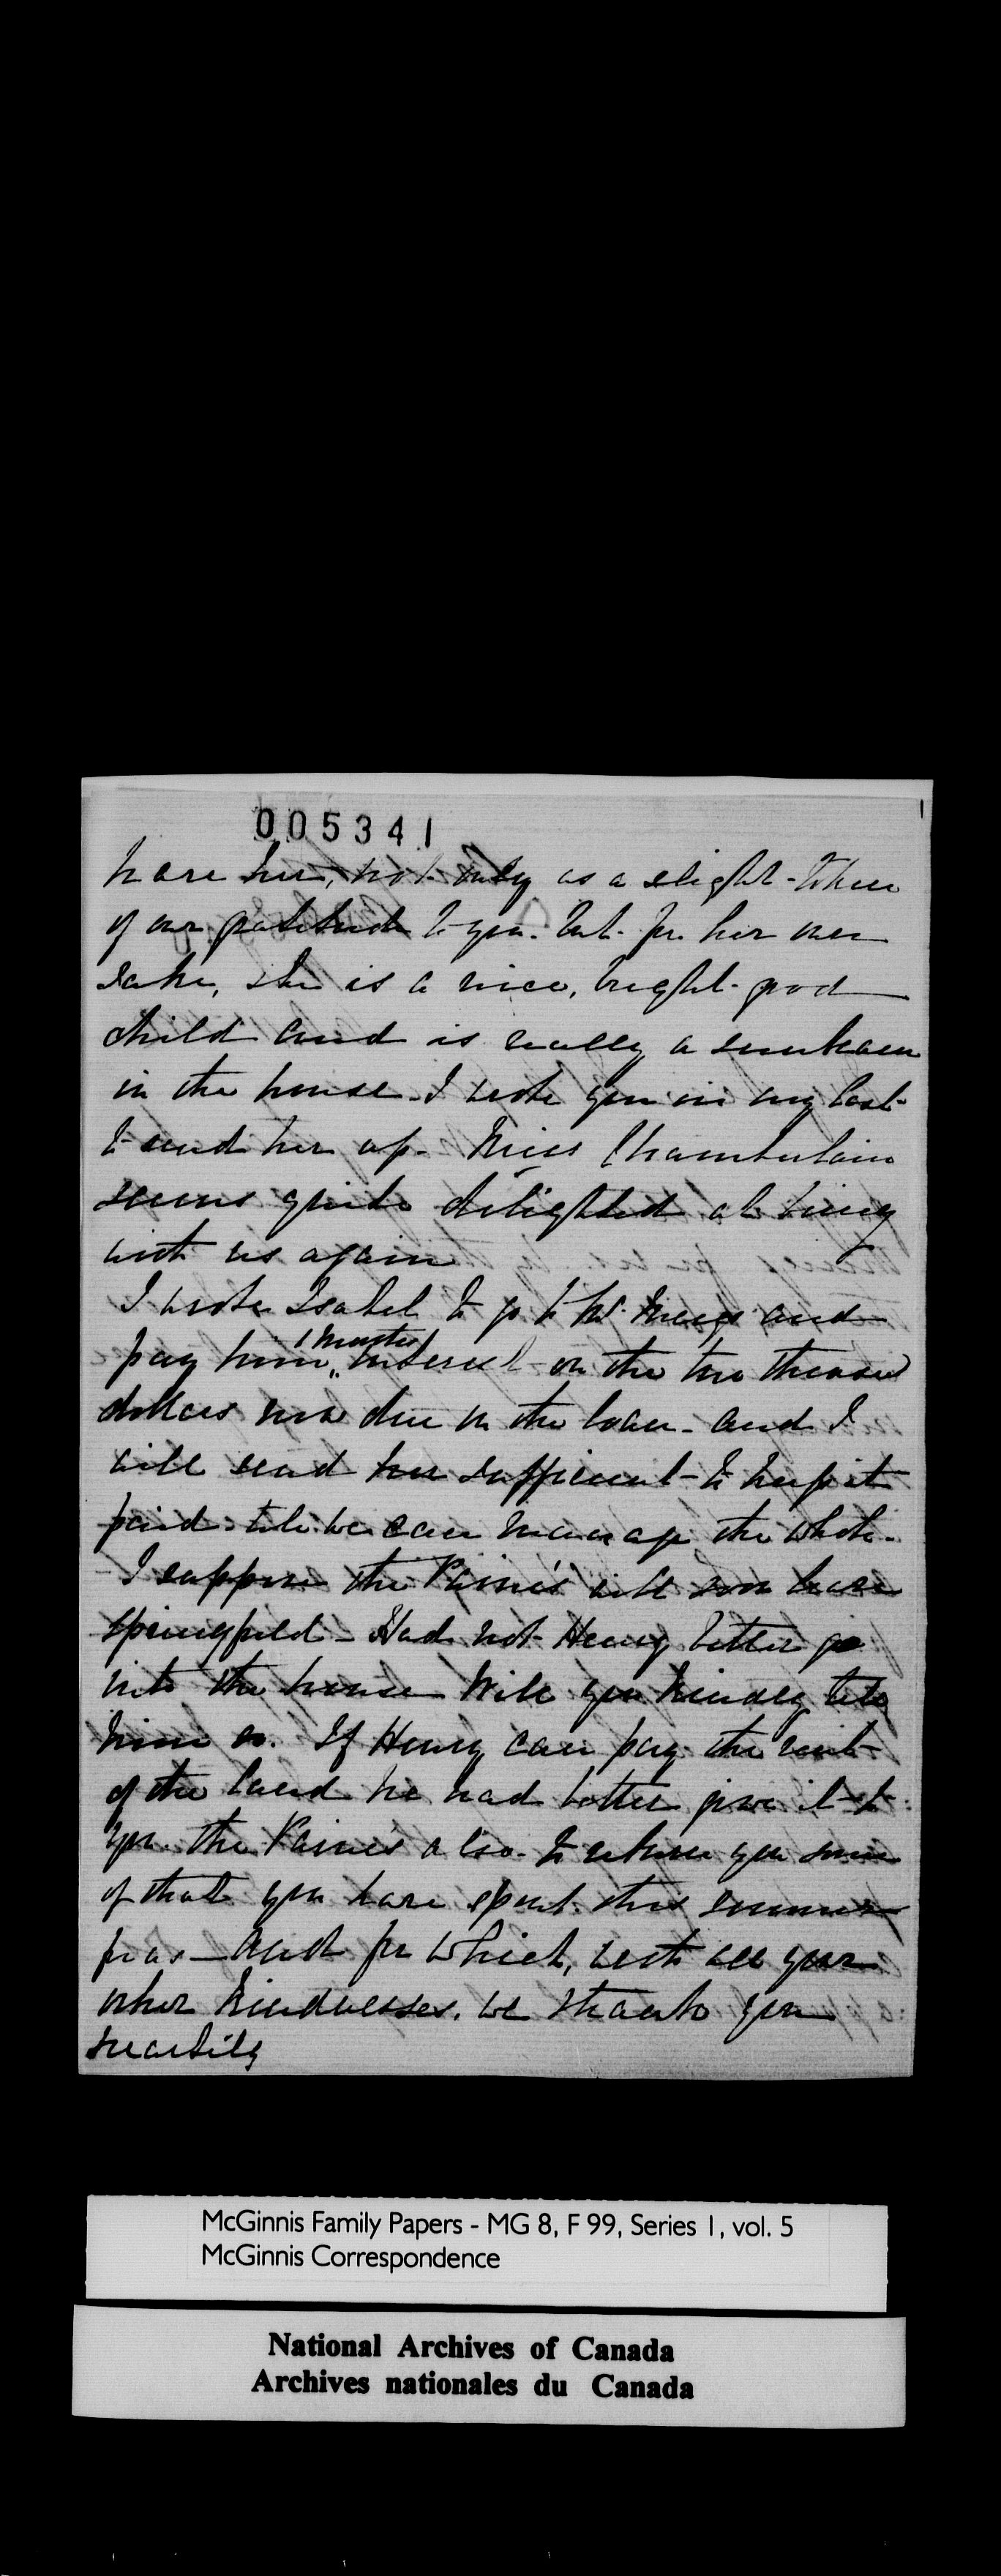 005341
have her, not only as a slight token
of our gratitude to you. but for her own
sake, she is a nice, bright good
child and is really a sunbeam
in the house. I wrote you in my last
to send her up. Miss Chamberlain
seems quite delighted at being
with us again
I wrote Isabel to go to Mr. and
pay him interest on the two thousand
dollars now due on the loan. and I
will send her sufficient to keep it
paid till we can manage the whole.
I suppose the will soon leave
Springfield - Had not Henry better go
into the house Will you kindly tell
him so. If Henry can pay the rent
of the land he had better give it to
you. the also. to return you some
of that you have spent this summer
for us - and for which, with all your
other kindnesses. we thank you
heartily
McGinnis Family Papers - MG 8, F 99, Series 1, vol. 5
McGinnis Correspondence
National Archives of Canada
Archives nationales du Canada